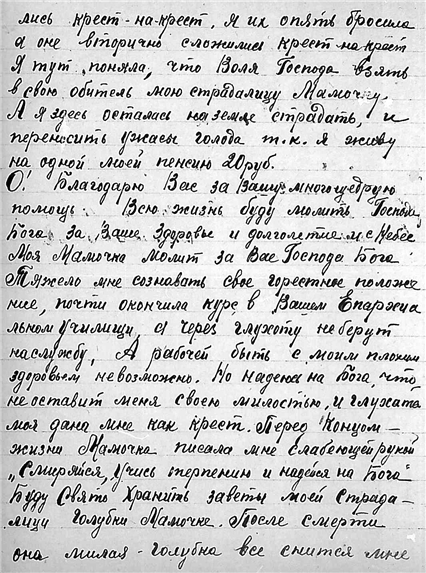 лись крест-на-крест, я их опять бросила
а оне вторично сложились крест на крест
Я тут поняла, что Воля Господа взять
в свою обитель мою страдалицу Мамочку.
А я здесь осталась на земле страдать, и
переносить ужасы голода т.к. я живу
на одной моей пенсию 20 руб.
О! Благодарю Вас за Вашу многощедрую
помощь. Всю жизнь буду молить Господа
Бога за Ваше здоровье и долголетие и с Небес
Моя Мамочка молит за Вас Господа Бога
Тяжело мне сознавать свое горестное положе-
ние, почти окончила курс, в Вашем Епархиа
льном училищи, а через глухоту не берут
на службу, А рабочей быть с моим плохим
здоровьем невозможно. Но надеюсь на Бога, что
не оставит меня своею милостью, и глухота
моя дана мне как крест. Перед Концом-
жизни Мамочка писала мне слабеющей рукой
„Смиряйся, учись терпению и надейся на Бога"
Буду Свято Хранить заветы моей Страда-
лици голубки Мамочке. После смерти
она милая-голубка все снится мне